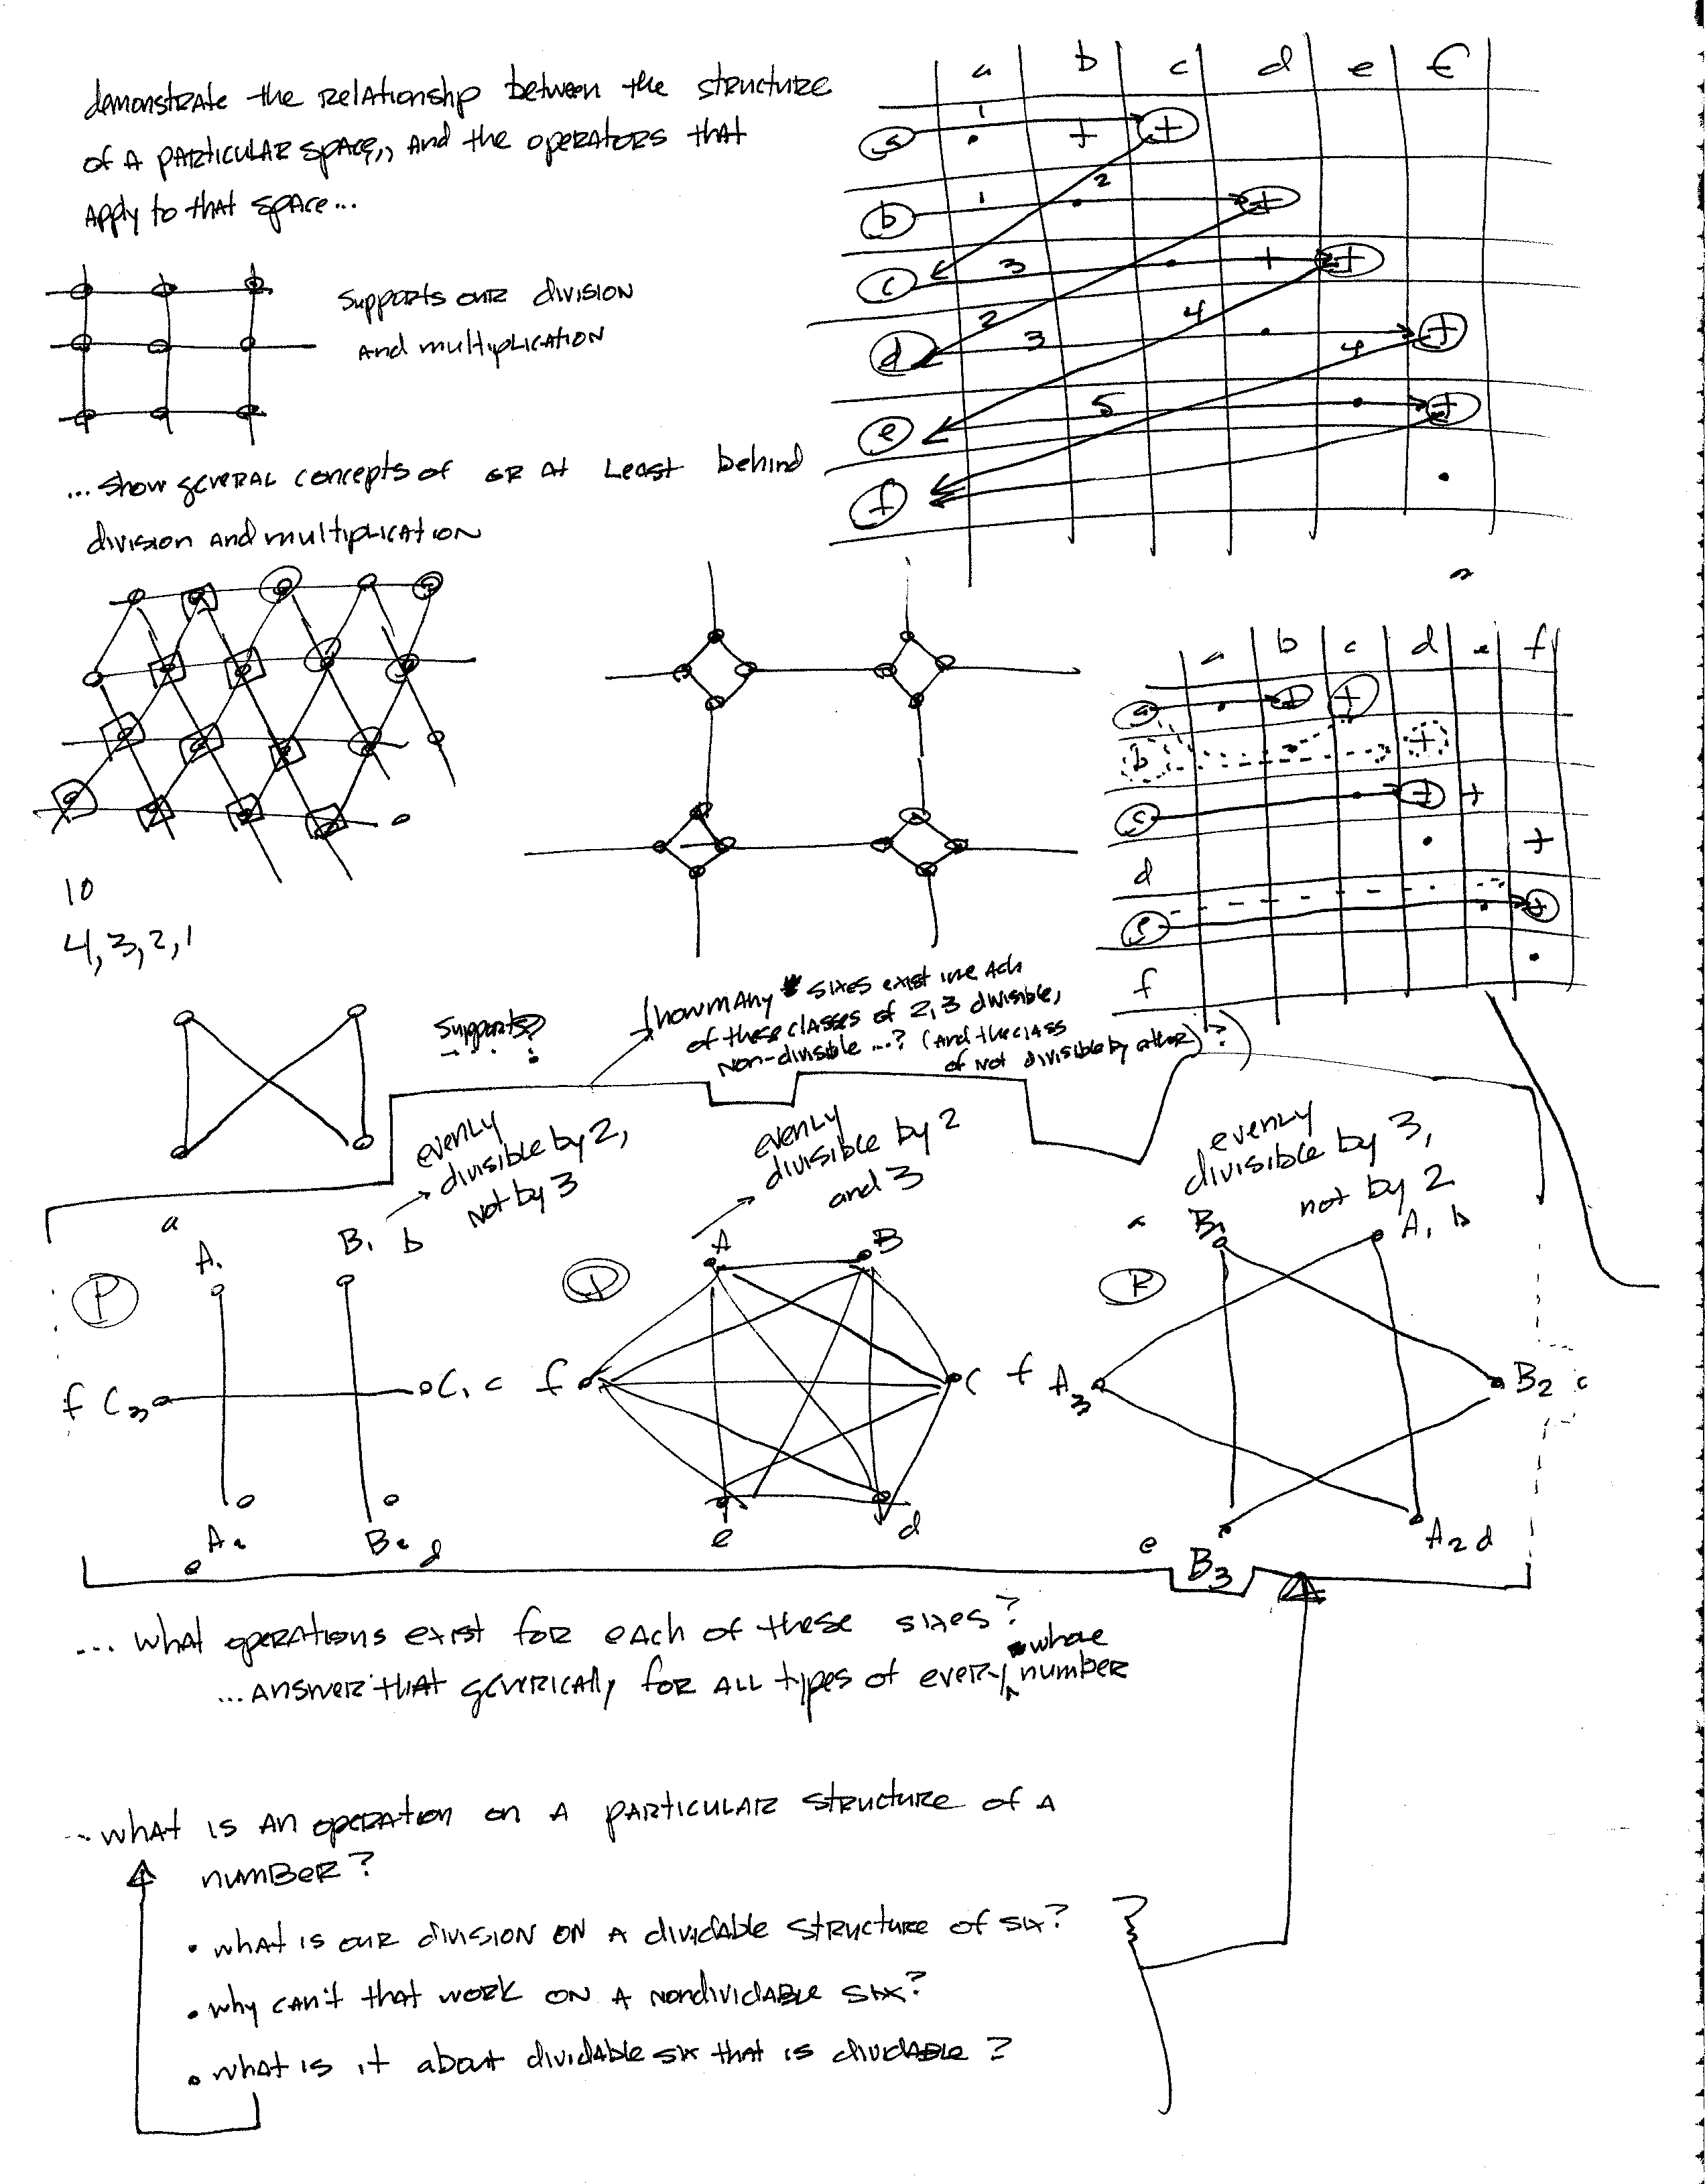 demonstrate the relationship between the structure
of a particular space,, and the operators that
apply to that space...
supports our division
and multiplication
... show general concepts of or at least behind
division and multiplication
a b c d e f
a 1 . + +
b 1 . 2 +
c 3 . + +
d 2 3 . 4 +
e 5 . 4 +
f .
a b c d e f
a . + +
b . +
c . + +
d . +
e . +
f .
10
4, 3, 2, 1
supports?
how many sizes exist in each
of these classes of 2, 3 divisible,
non-divisible ...? (and the class
of not divisible by either)?
evenly
divisible by 2,
not by 3
evenly
divisible by 2
and 3
evenly
divisible by 3,
not by 2
a A1 B1 b
P
f C2 C1 c
A2 e B2 d
A B
f C
e d
a B1 A1 b
R
f A3 B2 c
e B3 A2 d
... what operations exist for each of these sizes?
... answer that generically for all types of every whole number
... what is an operation on a particular structure of a
number?
• what is our division on a dividable structure of six?
• why can't that work on a nondividable six?
• what is it about dividable six that is dividable?